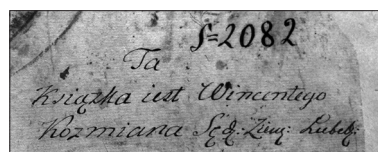 S=2082
Ta
Książka iest Wincentego
Kozmiana Sęd: Ziem: Lubel: